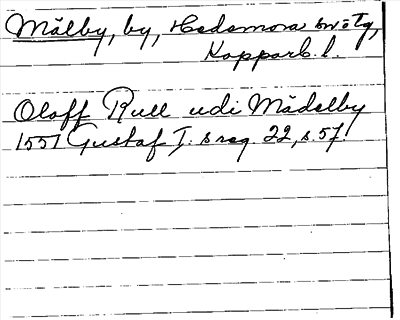 Målby, by, Hedemora sn o tg,
Kopparb. l.
Oloff Rull udi Mädelby
1551 Gustaf I:s reg. 22, s. 57.